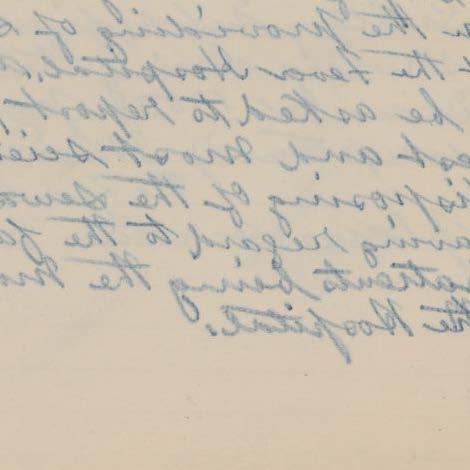 the providing of
the Fever Hospital
be asked to report
est and most scien
isposing of the sewa
aving regard to the fa
patients being the mo
the Hospital.